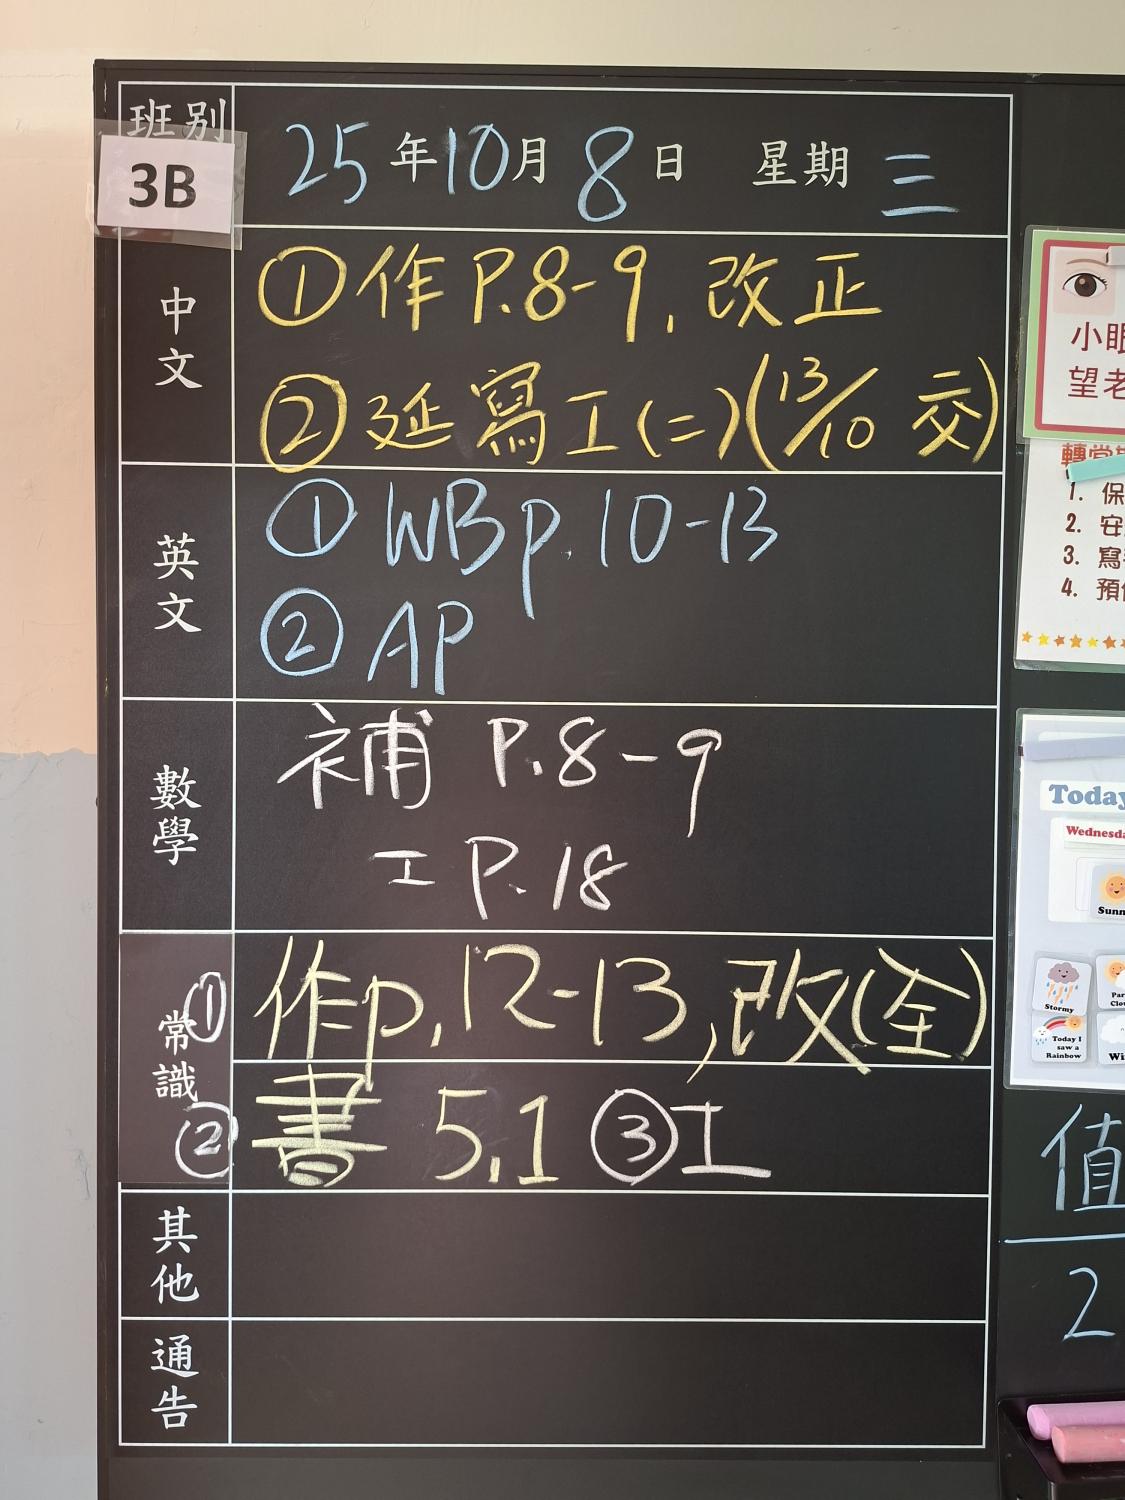 班別
3B
25年10月8日 星期三
中文
①作P.8-9,改正
②延寫工(二)(13/10交)
英文
①WBp.10-13
②AP
數學
補 P.8-9
工P.18
常識
①作p.12-13,改(全)
②書 5.1 ③工
其他
通告
小眼
望老
轉堂
1. 保
2. 安
3. 寫
4. 預
Today
Wednesda
Sunn
Stormy
Par
Clou
Today I
saw a
Rainbow
Wi
值
2